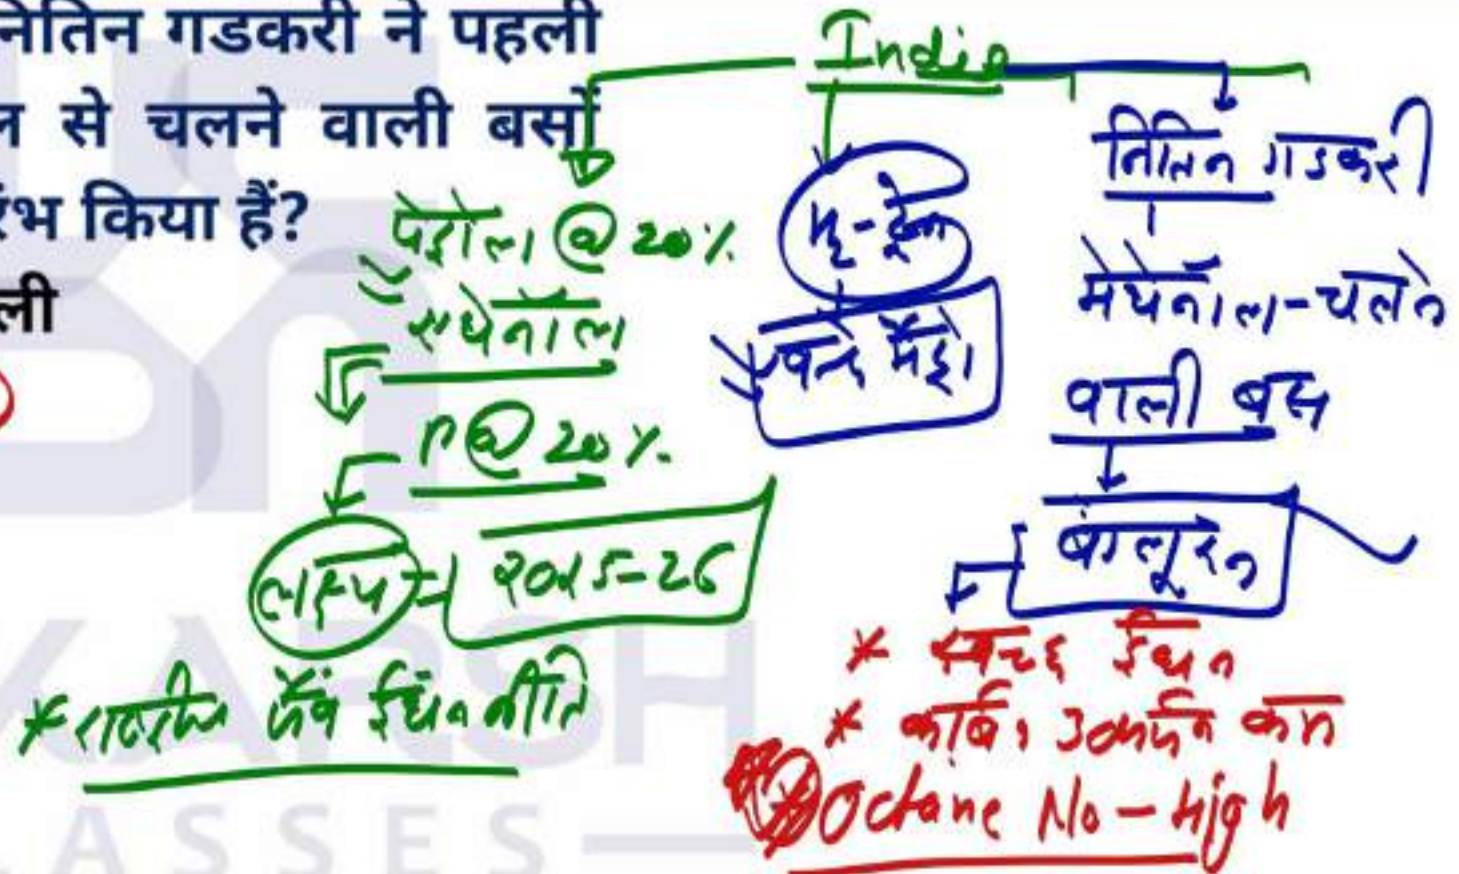 नितिन गडकरी ने पहली
ल से चलने वाली बसों
रंभ किया हैं?
ली
India
पेट्रोल @ 20%
एथेनॉल
P @ 20%
लक्ष्य = 2025-26
* राष्ट्रीय जैव ईंधन नीति
वन्दे मेट्रो
नितिन गडकरी
मेथेनॉल-चलने
वाली बस
* स्वच्छ ईंधन
* कार्बन उत्सर्जन कम
Octane No - High
KARSH
ASSES